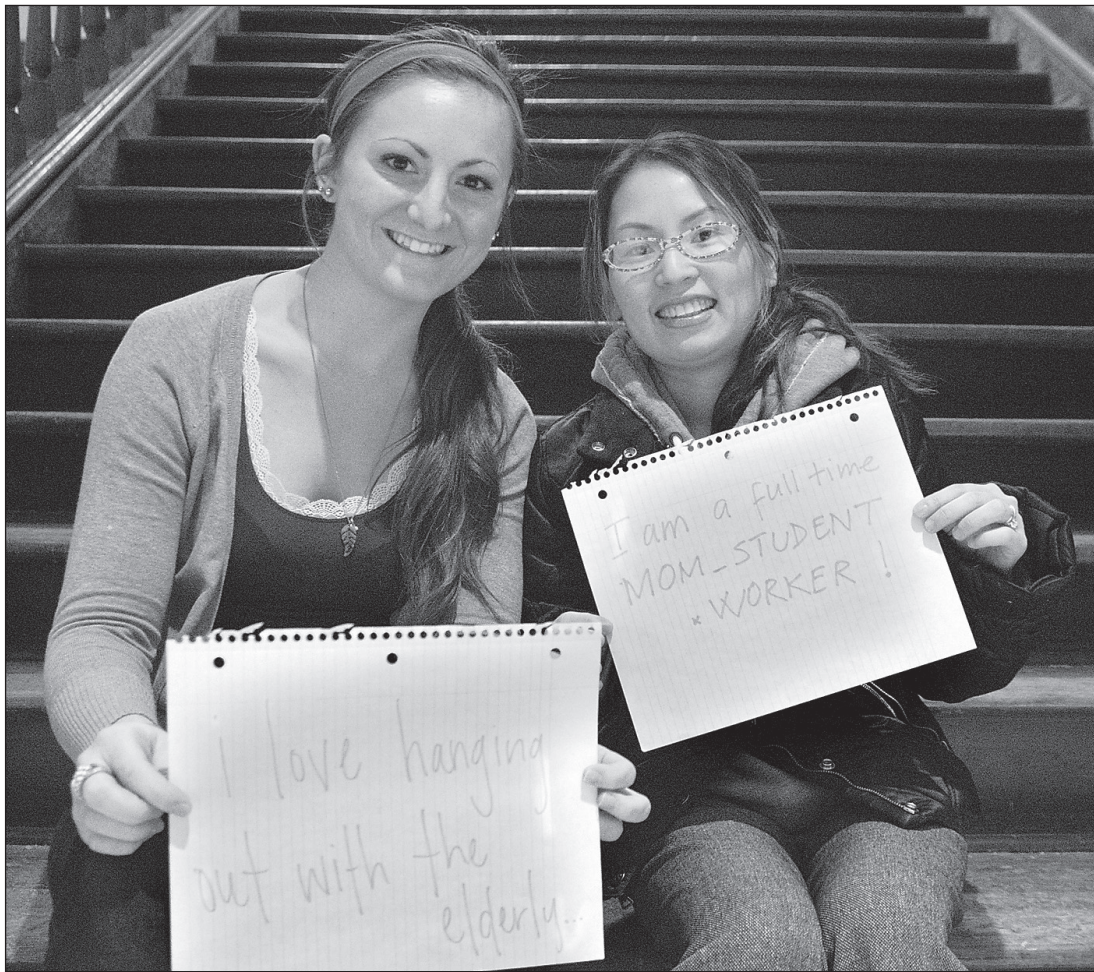 i love hanging
out with the
elderly...
I am a full time
MOM_STUDENT
× WORKER !